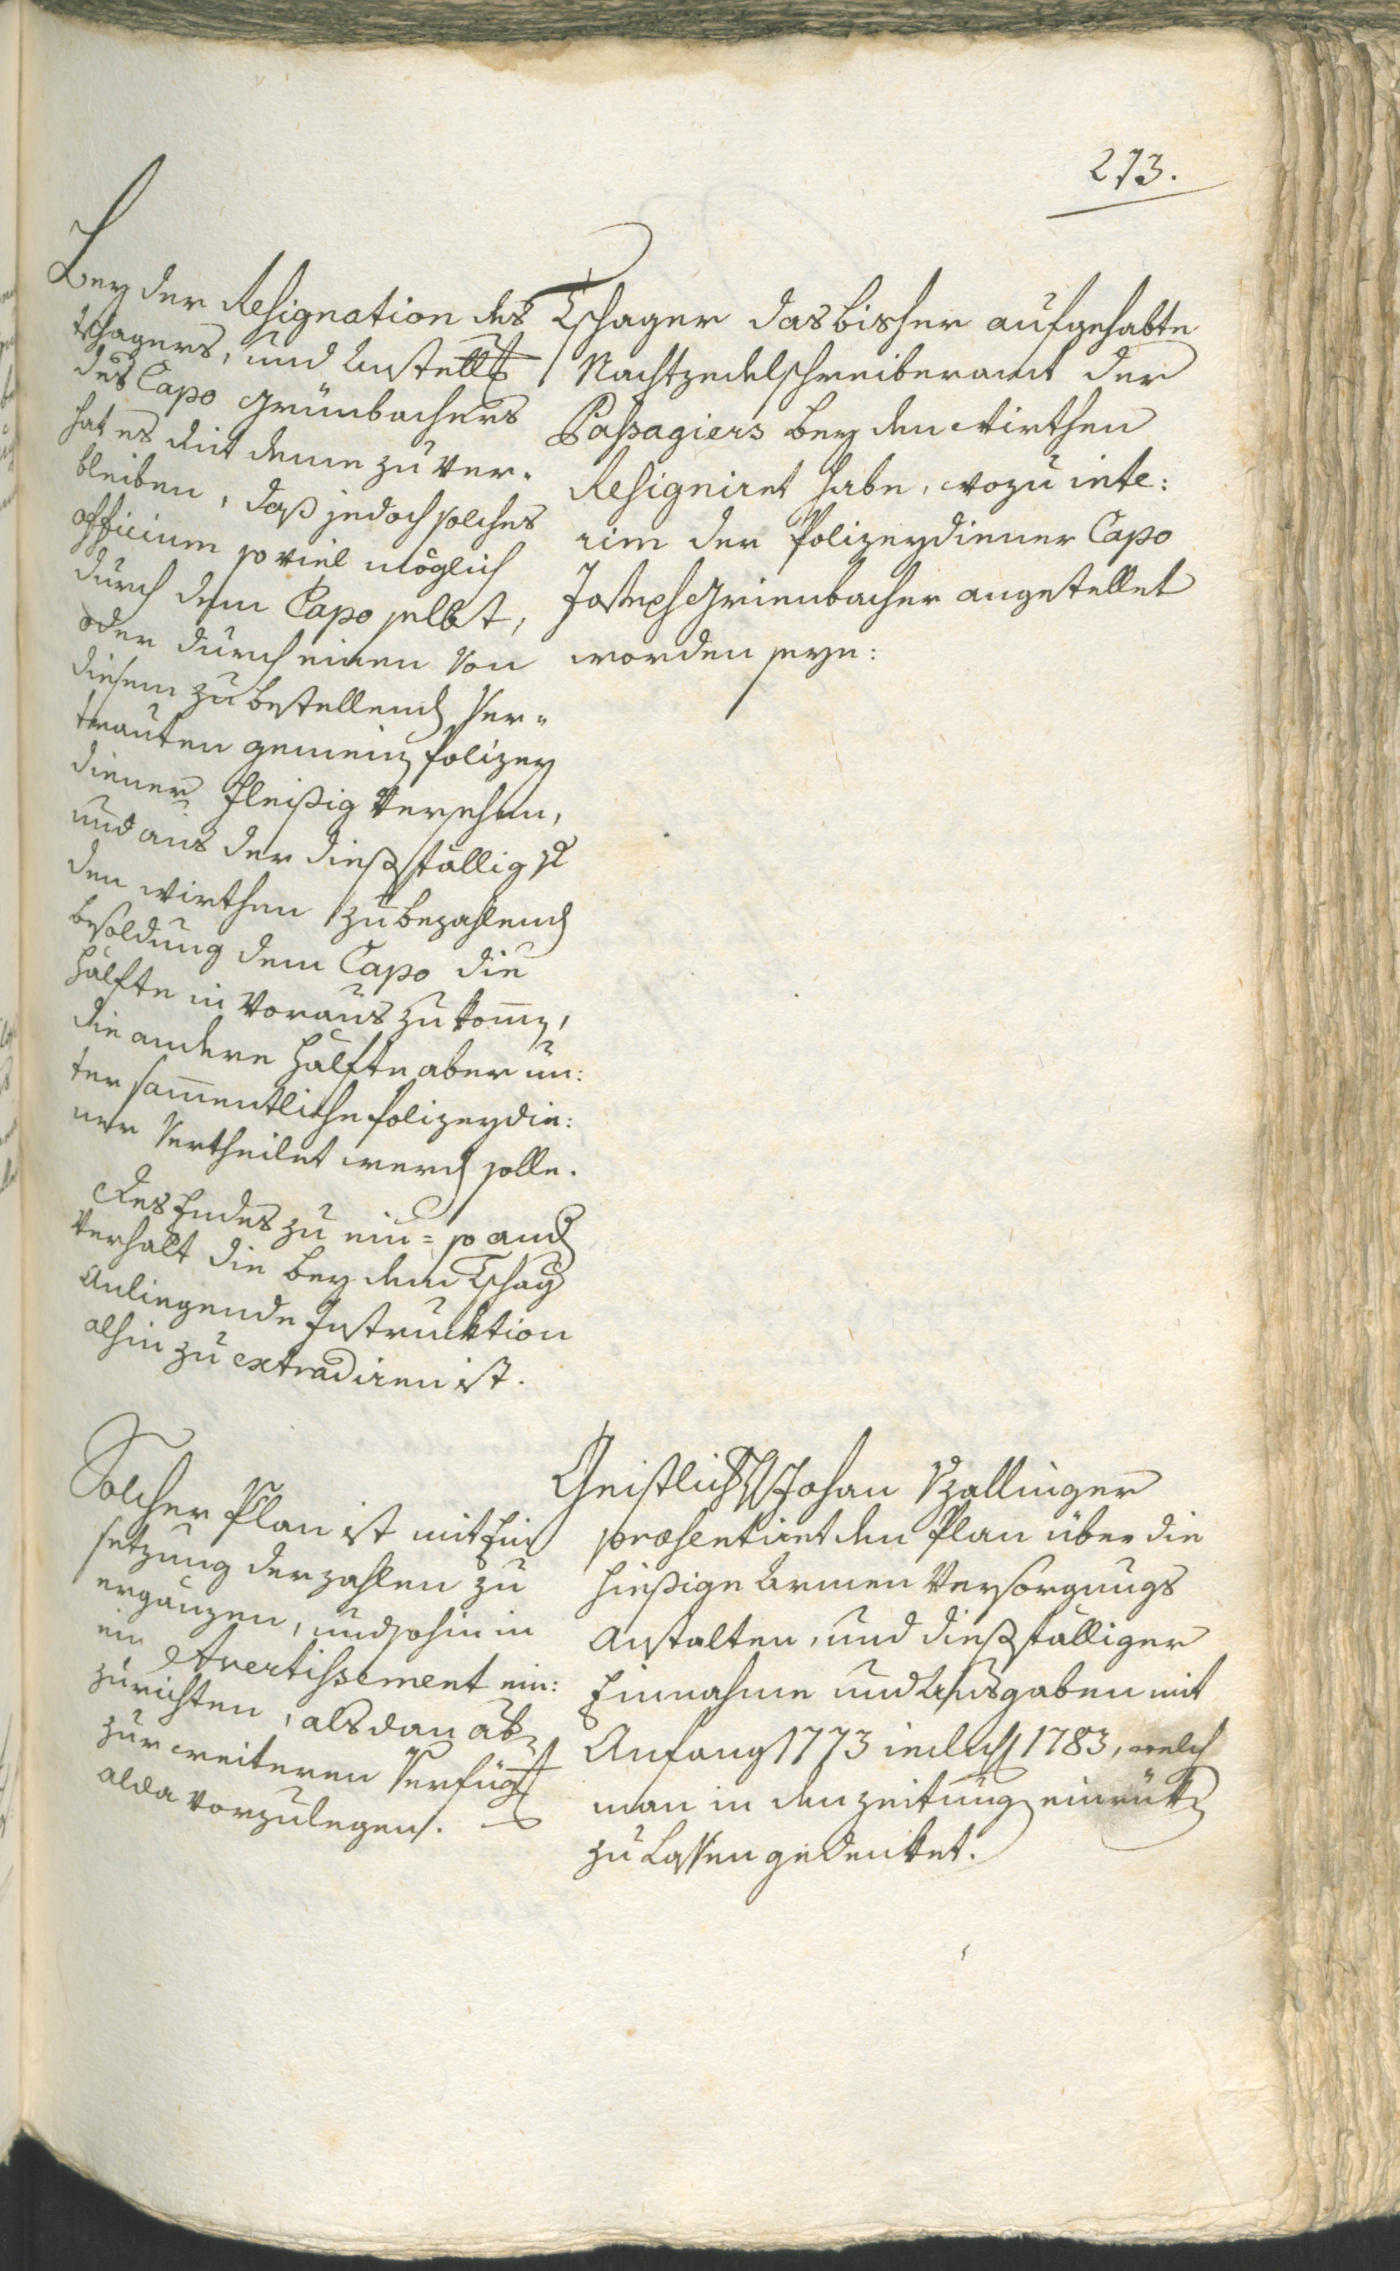 273.
Bey der Resignation des
Tschagers, und Anstell[un]g
des Capo Grünbachers
hat es mit deme zu ver-
bleiben, daß jedoch solches
officium so viel möglich
durch dem Capo selbst,
oder durch einen von
diesem zu bestellend Ver-
trauten gemein Polizey
diener fleißig versehen,
und aus der dießfällig
den Wirthen zu bezahlend
besoldung dem Capo die
hälfte in voraus zukom̅en,
die andere hälfte aber un:
ter sam̅entliche Polizeydie:
ner vertheilet werd solle.
Des Endes zu ein= so and
verhalt die bey dem Tschag
anliegende Instrucktion
alhin zu extradiren ist.
Tschager das bisher aufgehabte
Nachtzedelschreiberamt der
Passagiers bey den Wirthen
Resigniret habe, wozu inte:
rim der Polizeydiener Capo
Joseph Grienbacher angestellet
worden seye:
Solcher Plan ist mit Ein
setzung der zahlen zu
ergänzen, und sohin in
ein Avertissement ein:
zurichten, alsdan ab
zur weiteren Verfüg
alda vorzulegen.
Geistlich H Johan V Zallinger
præsentiret den Plan über die
hießige Armen Versorgungs
Anstalten, und dießfälliger
Einnahme und Ausgaben mit
Anfang 1773 incluß 1783, welch
man in den zeitung einrück
zu Lassen gedenket.